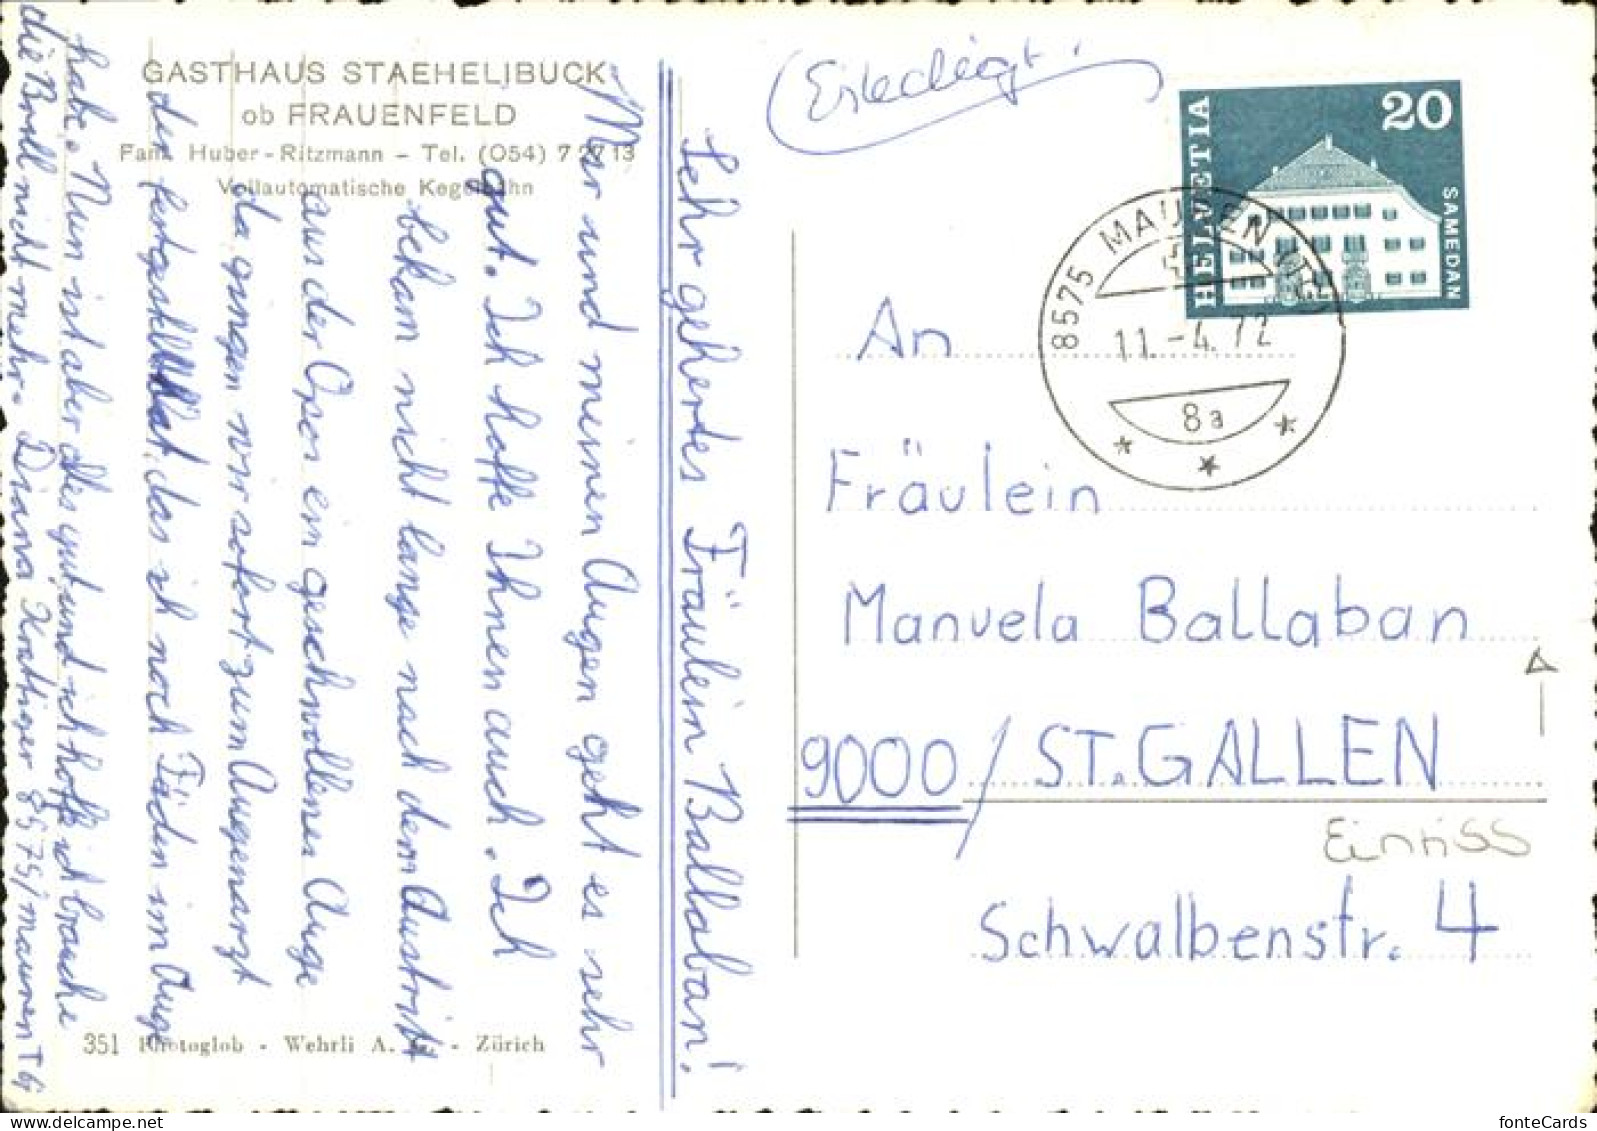 GASTHAUS STAEHELIBUCK
ob FRAUENFELD
Fam. Huber-Ritzmann - Tel. (054) 7 27 13
Vollautomatische Kegelbahn
Sehr geehrtes Fräulein Ballaban!
Mir und meinen Augen geht es sehr
gut. Ich hoffe Ihnen auch. Ich
bekam nicht lange nach dem Austritt
aus der Oper ein geschwollenes Auge
da gingen wir sofort zum Augenarzt
der festgestellt hat, das ich noch Fäden im Auge
habe. Nun ist aber alles gut und ich hoffe ich brauche
die Brill nicht mehr. Diana Krattiger 8575/mauren TG
351 Photoglob - Wehrli A. G. - Zürich
Erledigt.
HELVETIA
20
SAMEDAN
8575 MAUREN (TG)
11.-4.72
8a
An
Fräulein
Manuela Ballaban
9000/ST.GALLEN
Einriss
Schwalbenstr. 4
fonteCards